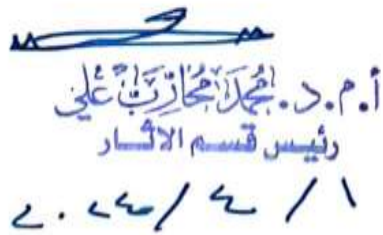 أ.م.د. محمد محارب علي
رئيس قسم الاثار
١ / ٤ / ٢٠٢٤